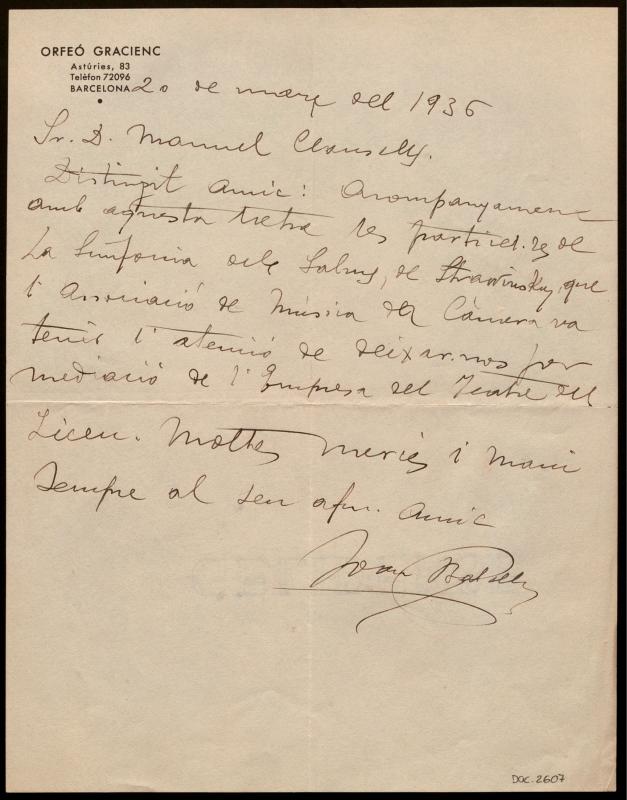 ORFEÓ GRACIENC
Astúries, 83
Telèfon 72096
BARCELONA 20 de març del 1936
Sr. D. Manuel Clausells.
Distingit amic: Acompanyament
amb aquesta lletra les particel.les de
La Simfonia dels Salms, de Strawinsky, que
l'Associació de Música de Càmera va
tenir l'atenció de deixar-nos per
mediació de l'Empresa del Teatre del
Liceu. Moltes mercès i mani
sempre al seu afm. amic
Joan Balcells
DOC. 2607